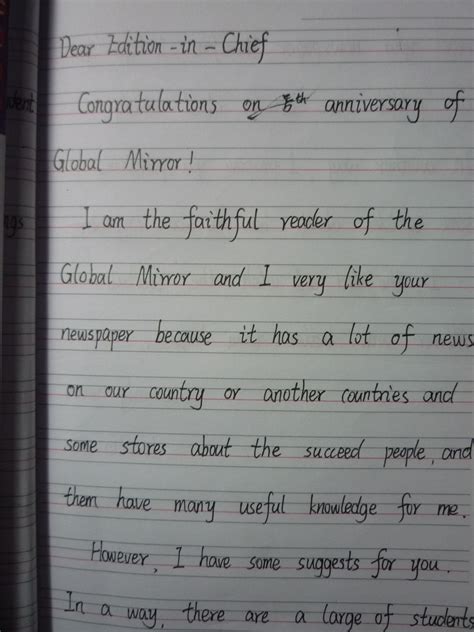 Dear Edition-in-Chief
Congratulations on 5th anniversary of
Global Mirror!
I am the faithful reader of the
Global Mirror and I very like your
newspaper because it has a lot of news
on our country or another countries and
some stores about the succeed people, and
them have many useful knowledge for me.
However, I have some suggests for you.
In a way, there are a large of students